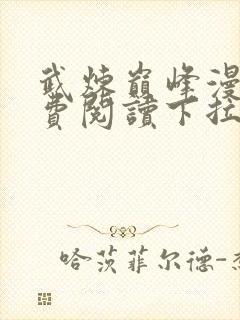 武炼巅峰漫
費閱讀下拉
哈茨菲尔德-杰